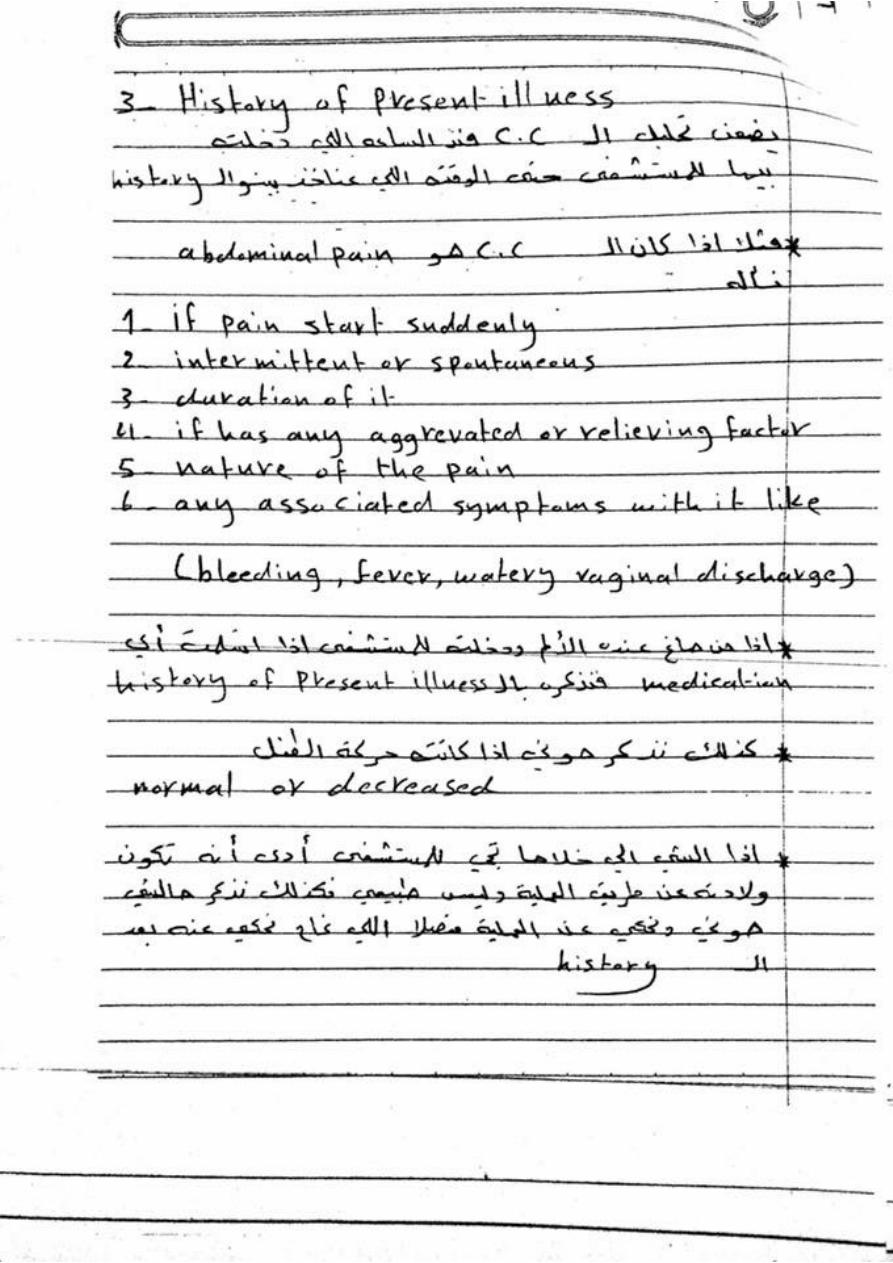 3- History of Present illness
يضمن تحليل الـ C.C منذ الساعه التي دخلت
بيها للمستشفى حتى الوقت اللي عناخذ بينو الـ history
* مثلا اذا كان الـ C.C هو abdominal pain
نسأله
1- if pain start suddenly
2- intermittent or spontaneous
3- duration of it
4- if has any aggrevated or relieving factor
5- nature of the pain
6- any associated symptoms with it like
(bleeding, fever, watery vaginal discharge)
* اذا من صاغ عنده الألم ودخلت للمستشفى اذا استلمت أي
medication فنذكره بالـ history of Present illness
* كذلك نذكر هوني اذا كانت حركة الطفل
normal or decreased
* اذا الشي الي خلاها تجي للمستشفى أدى أنه تكون
ولادته عن طريق العملية وليس طبيعي فكذلك نذكر هالشي
هوني ونحكي عن العملية مفصلا اللي غاح نحكي عنه بعد
الـ history